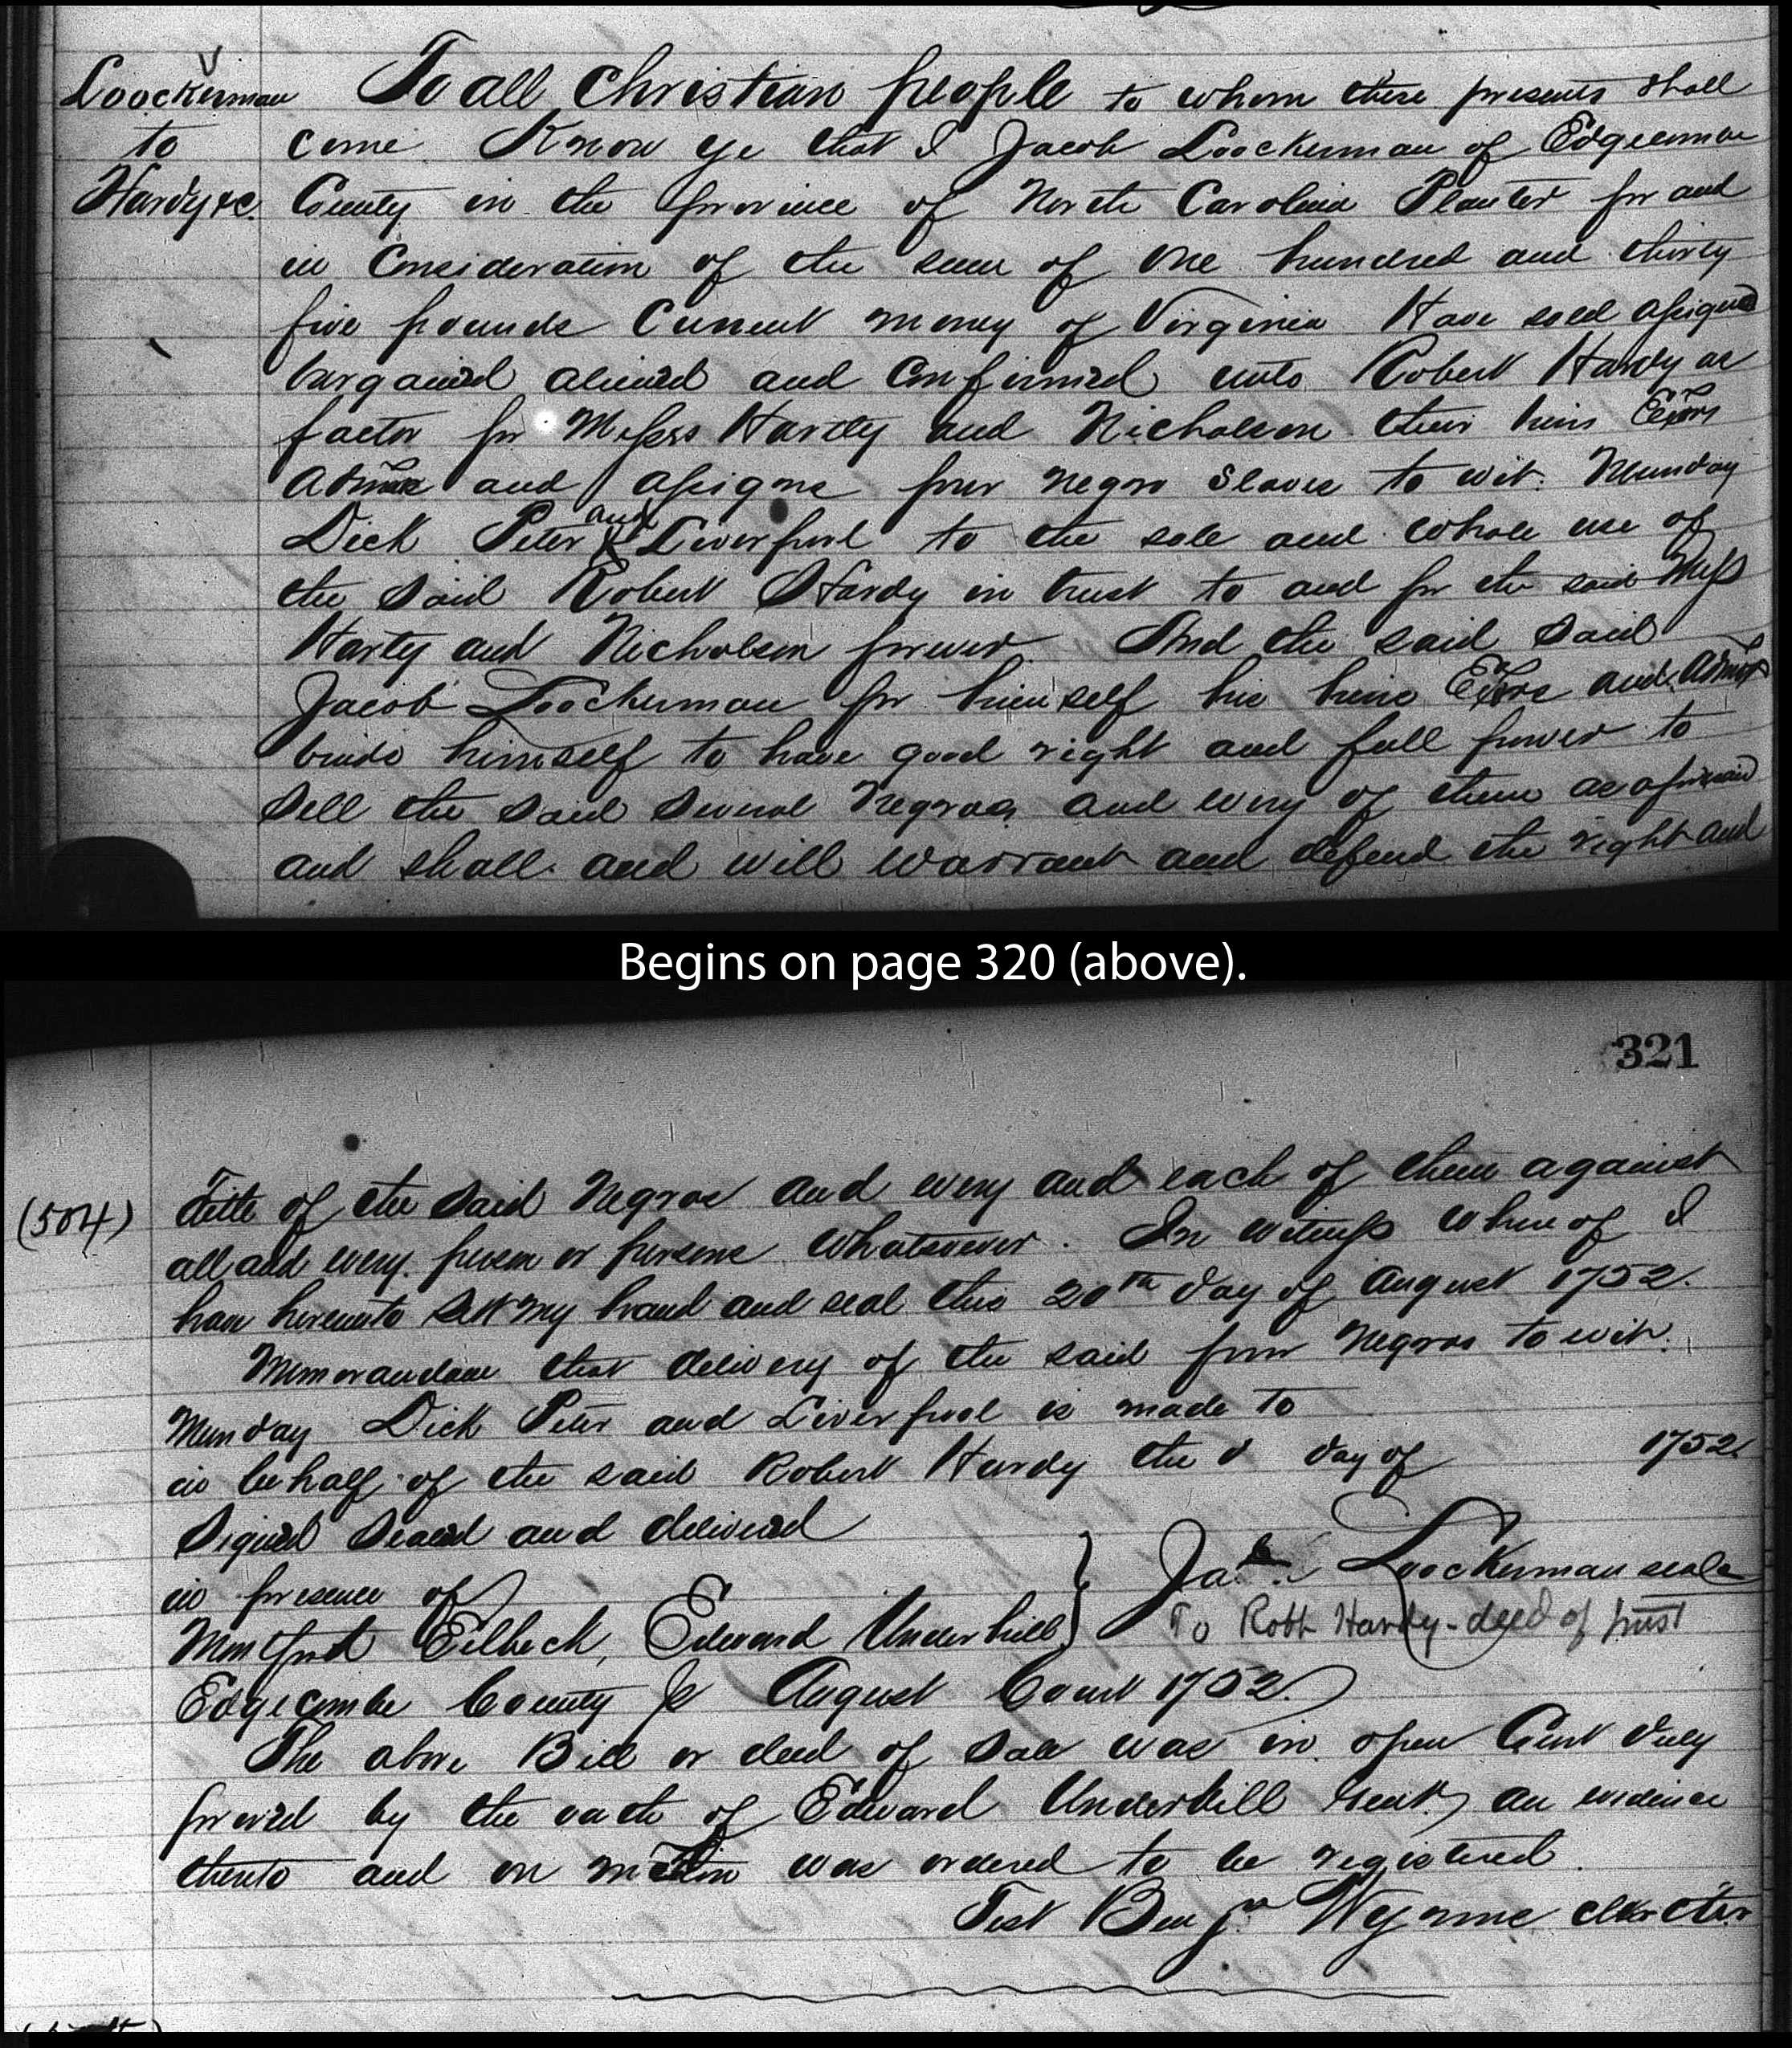 Loockerman
to
Hardy &c.
To all Christian people to whom these presents shall
come Know ye that I Jacob Loockerman of Edgecombe
County in the province of North Carolina Planter for and
in Consideration of the sum of One hundred and thirty
five pounds Current money of Virginia Have sold assigned
bargained aliened and Confirmed unto Robert Hardy as
factor for Messrs Hardy and Nicholson their heirs Exors
Admrs and assigns four negro Slaves to wit. Munday
Dick Peter and Liverpool to the sole and whole use of
the said Robert Hardy in trust to and for the said Mess
Harty and Nicholson forever. And the said said
Jacob Loockerman for himself his heirs Exors and Admrs
binds himself to have good right and full power to
sell the said several Negroes and every of them as aforesaid
and shall and will warrant and defend the right and
Begins on page 320 (above).
321
(504)
title of the said Negros and every and each of them against
all and every person or persons whatsoever. In witness whereof I
have hereunto sett my hand and seal this 20th day of August 1752.
Memorandum that delivery of the said four Negros to wit.
Munday Dick Peter and Liverpool is made to
in behalf of the said Robert Hardy the day of 1752.
Signed Sealed and delivered
in presence of
Montfort Eilbeck, Edward Underhill } Jab Loockerman seale
To Robt Hardy - deed of trust
Edgecombe County Sc August Court 1752.
The above Bill or deed of sale was in open Court duly
proved by the oath of Edward Underhill Gent. an evidence
thereto and on motion was ordered to be registered.
Test Benjn Wynne